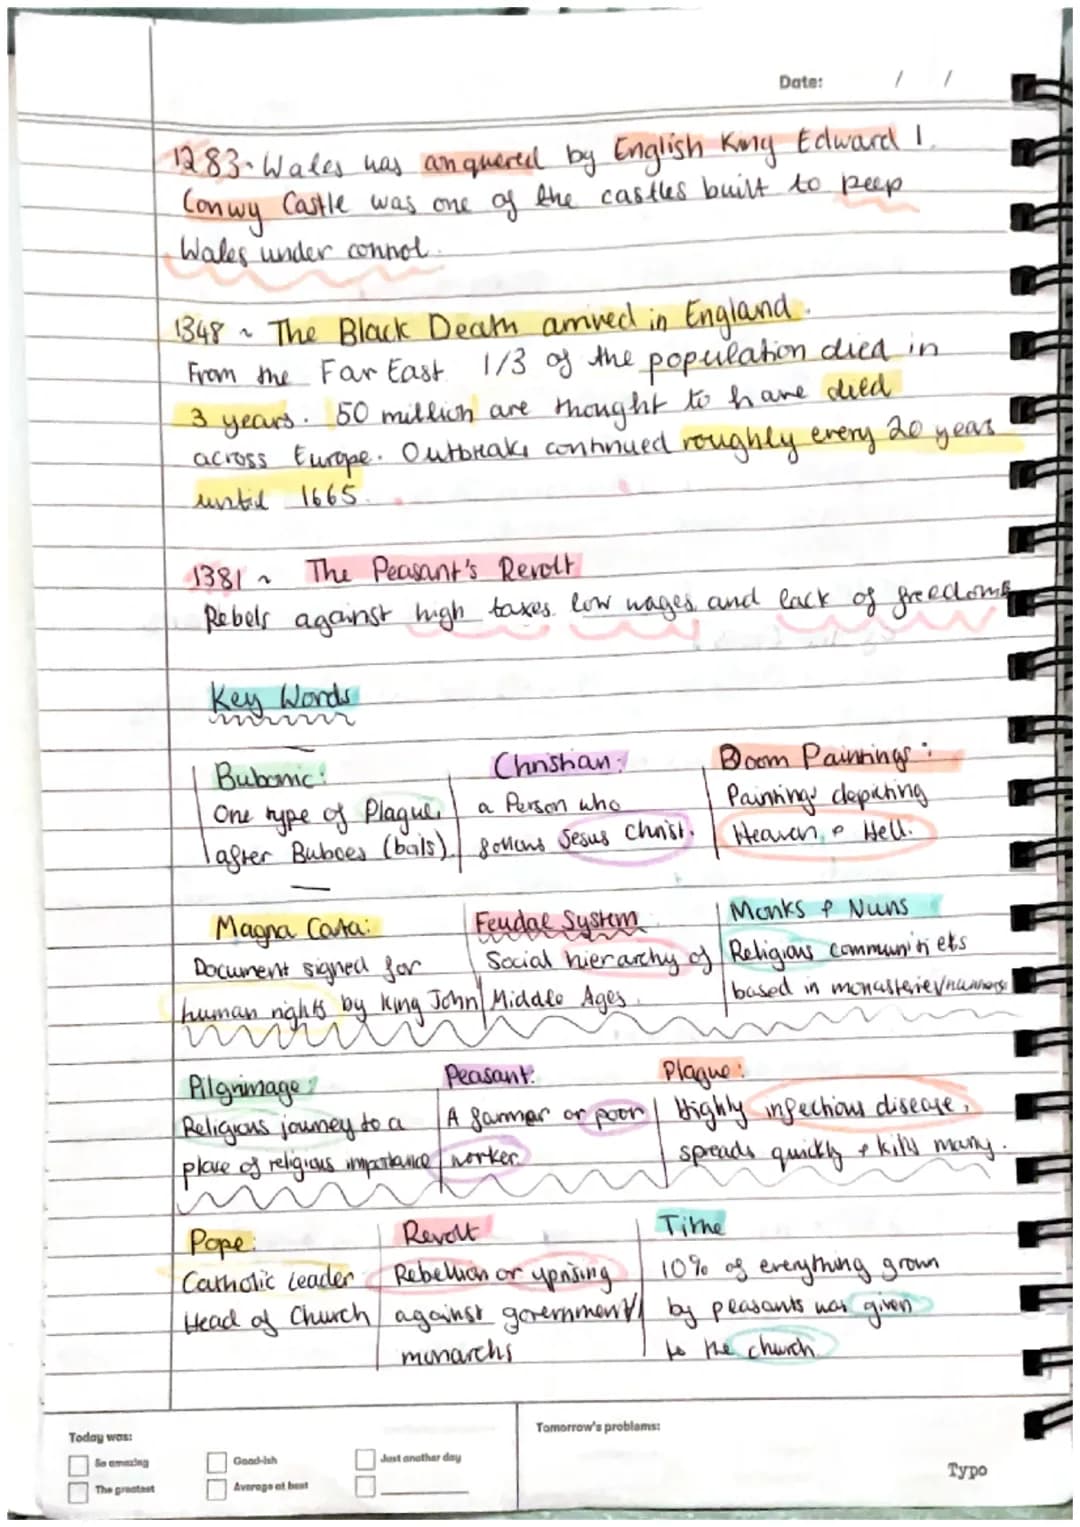 Date: / /
1283 - Wales was conquered by English King Edward I.
Conwy Castle was one of the castles built to keep
Wales under control.
1348 ~ The Black Death arrived in England.
From the Far East 1/3 of the population died in
3 years. 50 million are thought to have died
across Europe. Outbreaks continued roughly every 20 years
until 1665.
1381 ~ The Peasant's Revolt
Rebels against high taxes, low wages, and lack of freedoms
Key Words
Bubonic:
One type of Plague,
after Buboes (bals).
Christian:
a Person who
follows Jesus Christ.
Doom Paintings:
Paintings depicting
Heaven & Hell.
Magna Carta:
Document signed for
human rights by King John
Feudal System
Social hierarchy of
Middle Ages.
Monks & Nuns
Religious communities
based in monasteries/nunneries
Pilgrimage:
Religious journey to a
place of religious importance
Peasant:
A farmer or poor
worker
Plague:
Highly infectious disease,
spreads quickly & kills many.
Pope:
Catholic Leader
Head of Church
Revolt
Rebellion or uprising
against government/
monarchs
Tithe
10% of everything grown
by peasants was given
to the church.
Today was:
So amazing
Good-ish
Just another day
The greatest
Average at best
Tomorrow's problems:
Typo